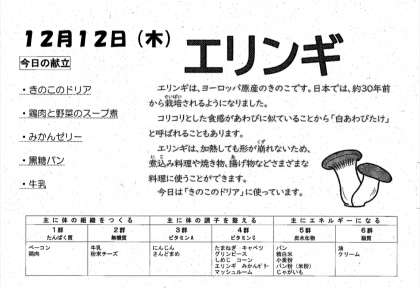 12月12日（木）
エリンギ
今日の献立
・きのこのドリア
・鶏肉と野菜のスープ煮
・みかんゼリー
・黒糖パン
・牛乳
エリンギは、ヨーロッパ原産のきのこです。日本では、約30年前
から栽培されるようになりました。
コリコリとした食感があわびに似ていることから「白あわびたけ」
と呼ばれることもあります。
エリンギは、加熱しても形が崩れないため、
煮込み料理や焼き物、揚げ物などさまざまな
料理に使うことができます。
今日は「きのこのドリア」に使っています。
主に体の組織をつくる 主に体の調子を整える 主にエネルギーになる
1群 2群 3群 4群 5群 6群
たんぱく質 無機質 ビタミンA ビタミンC 炭水化物 脂質
ベーコン 牛乳 にんじん たまねぎ キャベツ パン 油
鶏肉 粉末チーズ さんどまめ グリンピース 精白米 クリーム
しめじ コーン 小麦粉
エリンギ みかんｾﾞﾘｰ パン粉（米粉）
マッシュルーム じゃがいも